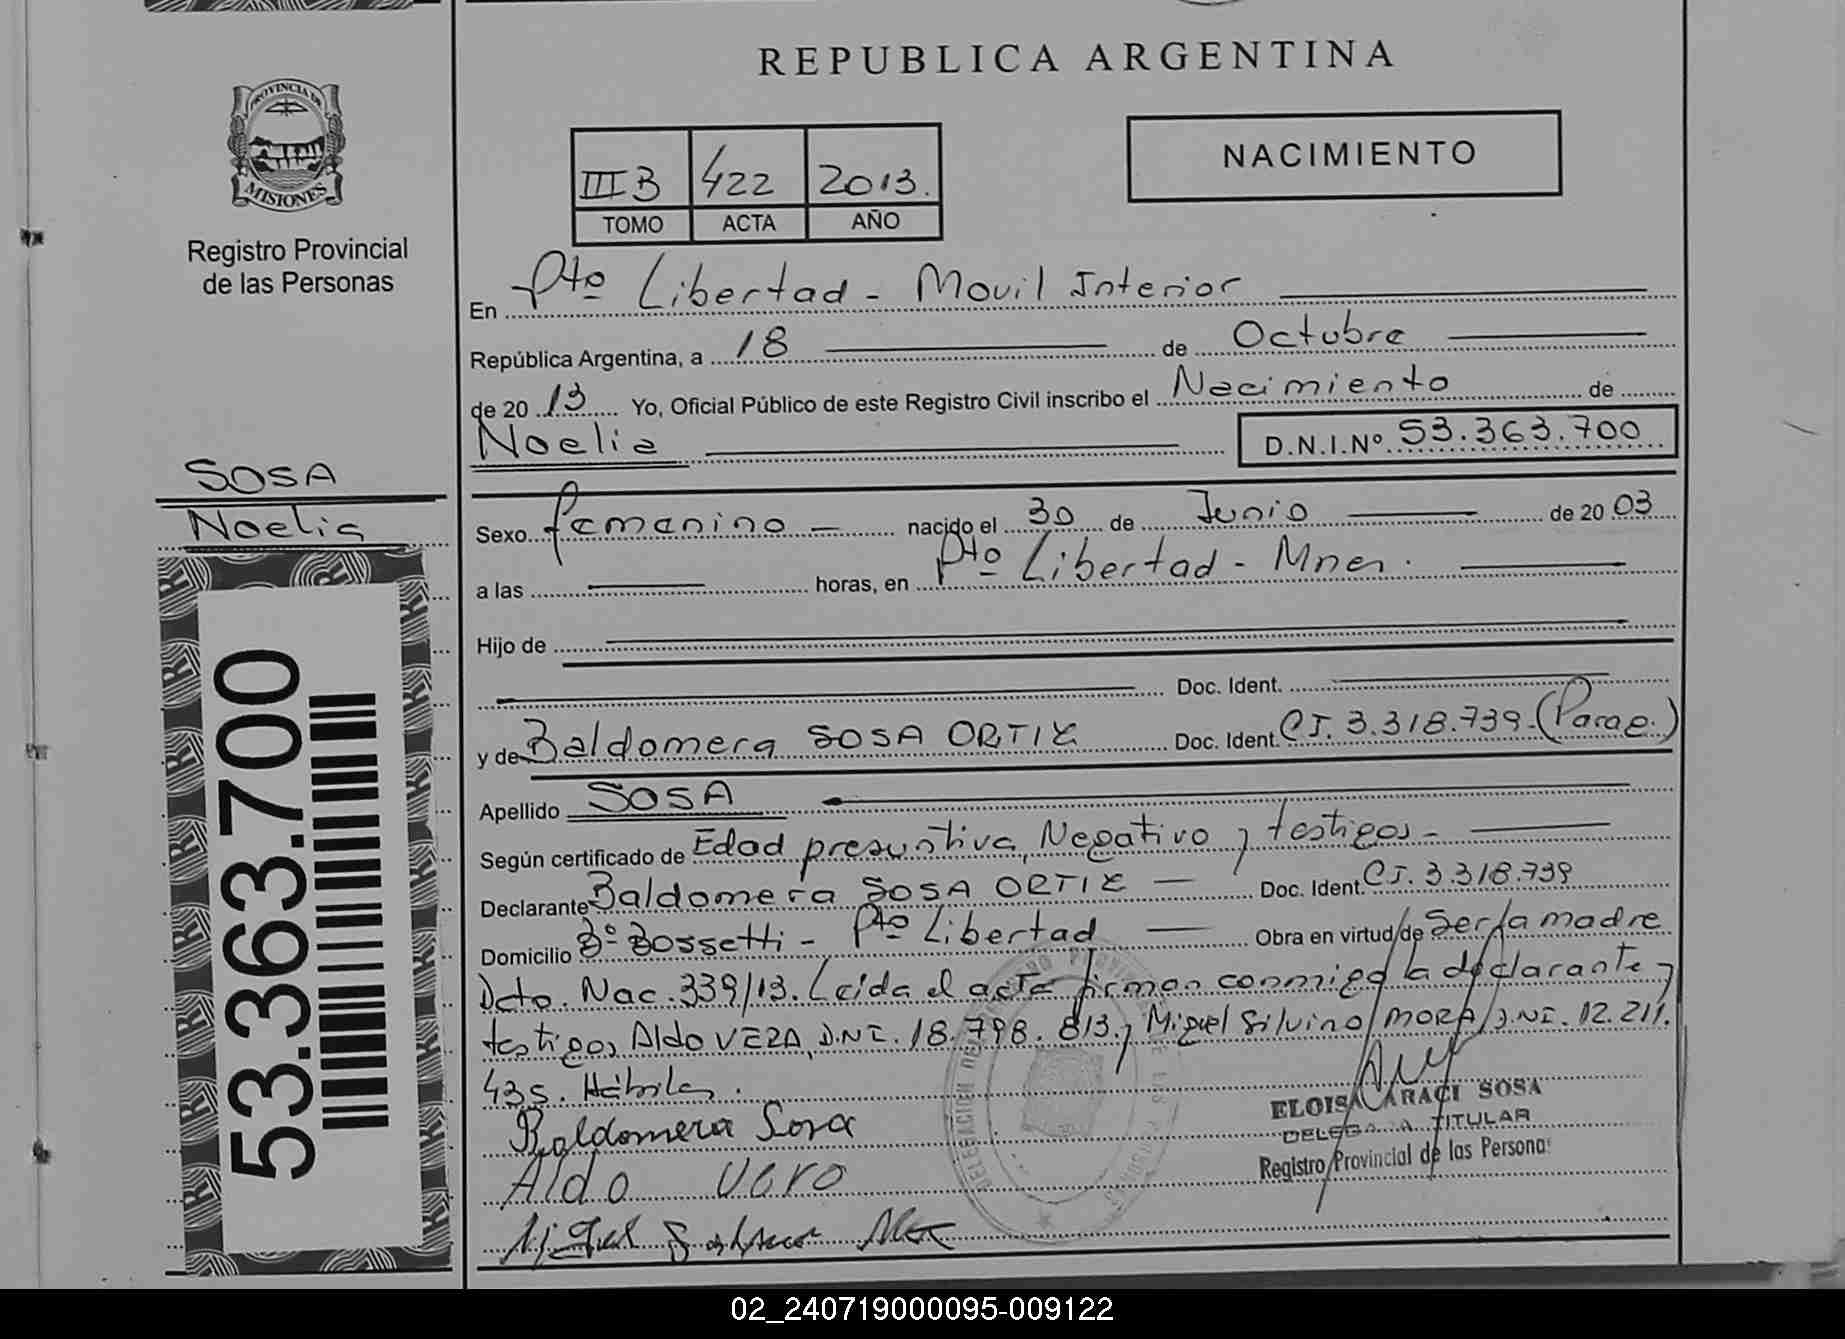 REPUBLICA ARGENTINA
PROVINCIA DE
MISIONES
Registro Provincial
de las Personas
III B 422 2013.
TOMO ACTA AÑO
NACIMIENTO
En Pto Libertad - Movil Interior
República Argentina, a 18 de Octubre
de 20 13 Yo, Oficial Público de este Registro Civil inscribo el Nacimiento de
Noelia D.N.I.Nº 53.363.700
SOSA
Noelia
53.363.700
Sexo femenino nacido el 30 de Junio de 20 03
a las horas, en Pto Libertad - Mnes.
Hijo de
Doc. Ident.
y de Baldomera SOSA ORTIZ Doc. Ident. CI. 3.318.739 - (Parag.)
Apellido SOSA
Según certificado de Edad presuntiva, Negativo y testigos -
Declarante Baldomera SOSA ORTIZ - Doc. Ident. CI. 3.318.739
Domicilio Bº Bossetti - Pto Libertad Obra en virtud de Ser la madre
Dcto. Nac. 339/13. Leida el acta firman conmigo la declarante y
testigos Aldo VERA, D.N.I. 18.798.813 y Miguel Silvino MORA D.N.I. 12.211.
435. Hábiles.
Baldomera Sosa
Aldo Vero
Miguel
ELOISA ARACI SOSA
DELEGADA TITULAR
Registro Provincial de las Personas
02_240719000095-009122